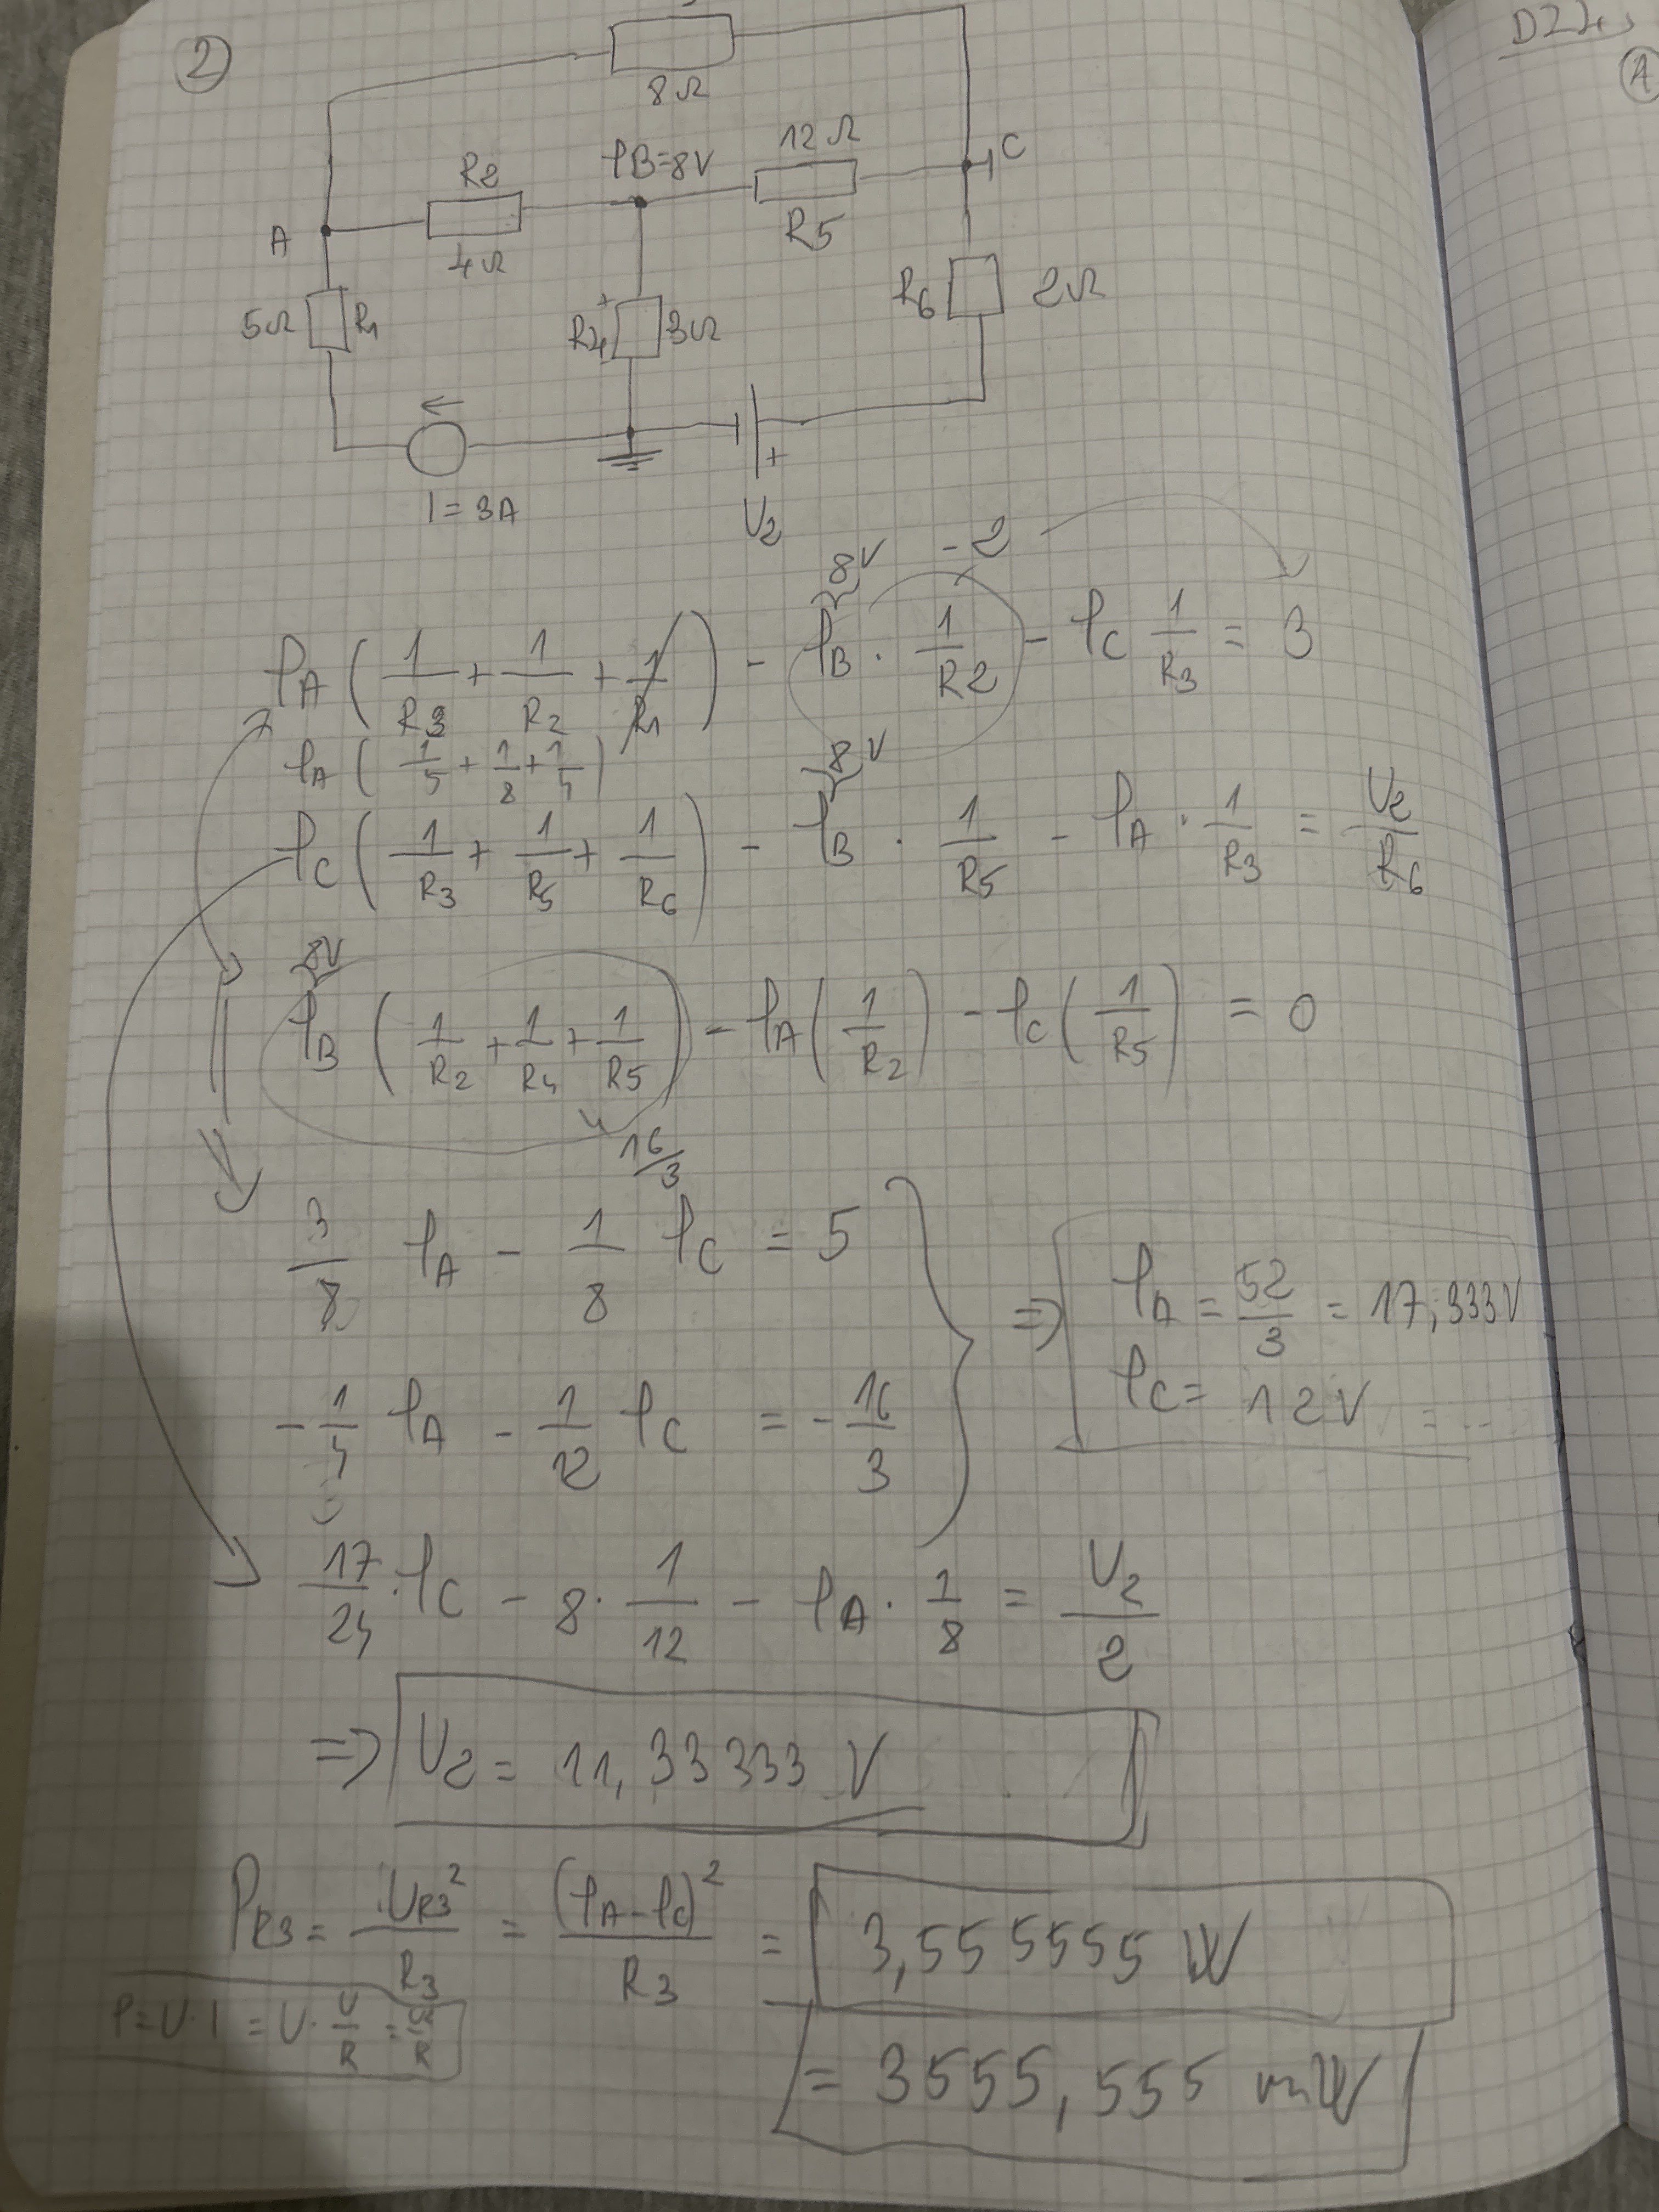 2)
8Ω
DZ4
A
φB=8V
12Ω
C
R2
R5
A
4Ω
R6
2Ω
5Ω R1
R4 + 3Ω
←
+
I = 3A
U2
8V
-2
φA ( 1/R3 + 1/R2 + 1/R1 ) - φB · 1/R2 - φC 1/R3 = 3
φA ( 1/5 + 1/8 + 1/4 )
8V
φC ( 1/R3 + 1/R5 + 1/R6 ) - φB · 1/R5 - φA · 1/R3 = U2/R6
8V
φB ( 1/R2 + 1/R4 + 1/R5 ) - φA ( 1/R2 ) - φC ( 1/R5 ) = 0
16/3
3/8 φA - 1/8 φC = 5
⇒ φA = 52/3 = 17,333V
φC = 12V = ...
-1/4 φA - 1/12 φC = -16/3
17/24 · φC - 8 · 1/12 - φA · 1/8 = U2/2
⇒ U2 = 11,33333 V
PR3 = UR3²/R3 = (φA-φC)²/R3 = 3,555555 W
P=U·I = U· U/R = U²/R
= 3555,555 mW